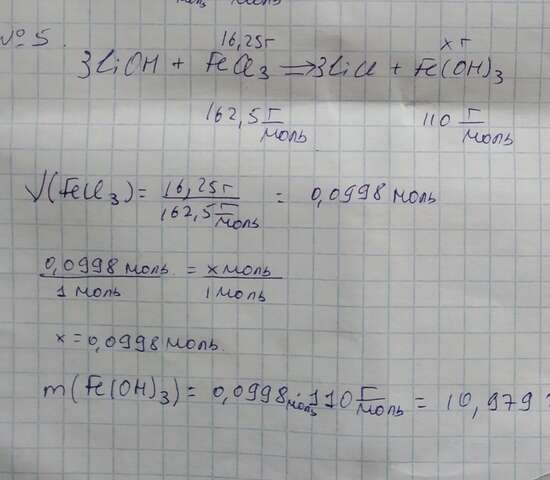 №5.
16,25г x г
3LiOH + FeCl₃ ⇒ 3LiCl + Fe(OH)₃
162,5 г/моль 110 г/моль
√(FeCl₃) = 16,25г / 162,5 г/моль = 0,0998 моль
0,0998 моль / 1 моль = x моль / 1 моль
x = 0,0998 моль
m(Fe(OH)₃) = 0,0998 моль · 110 г/моль = 10,979